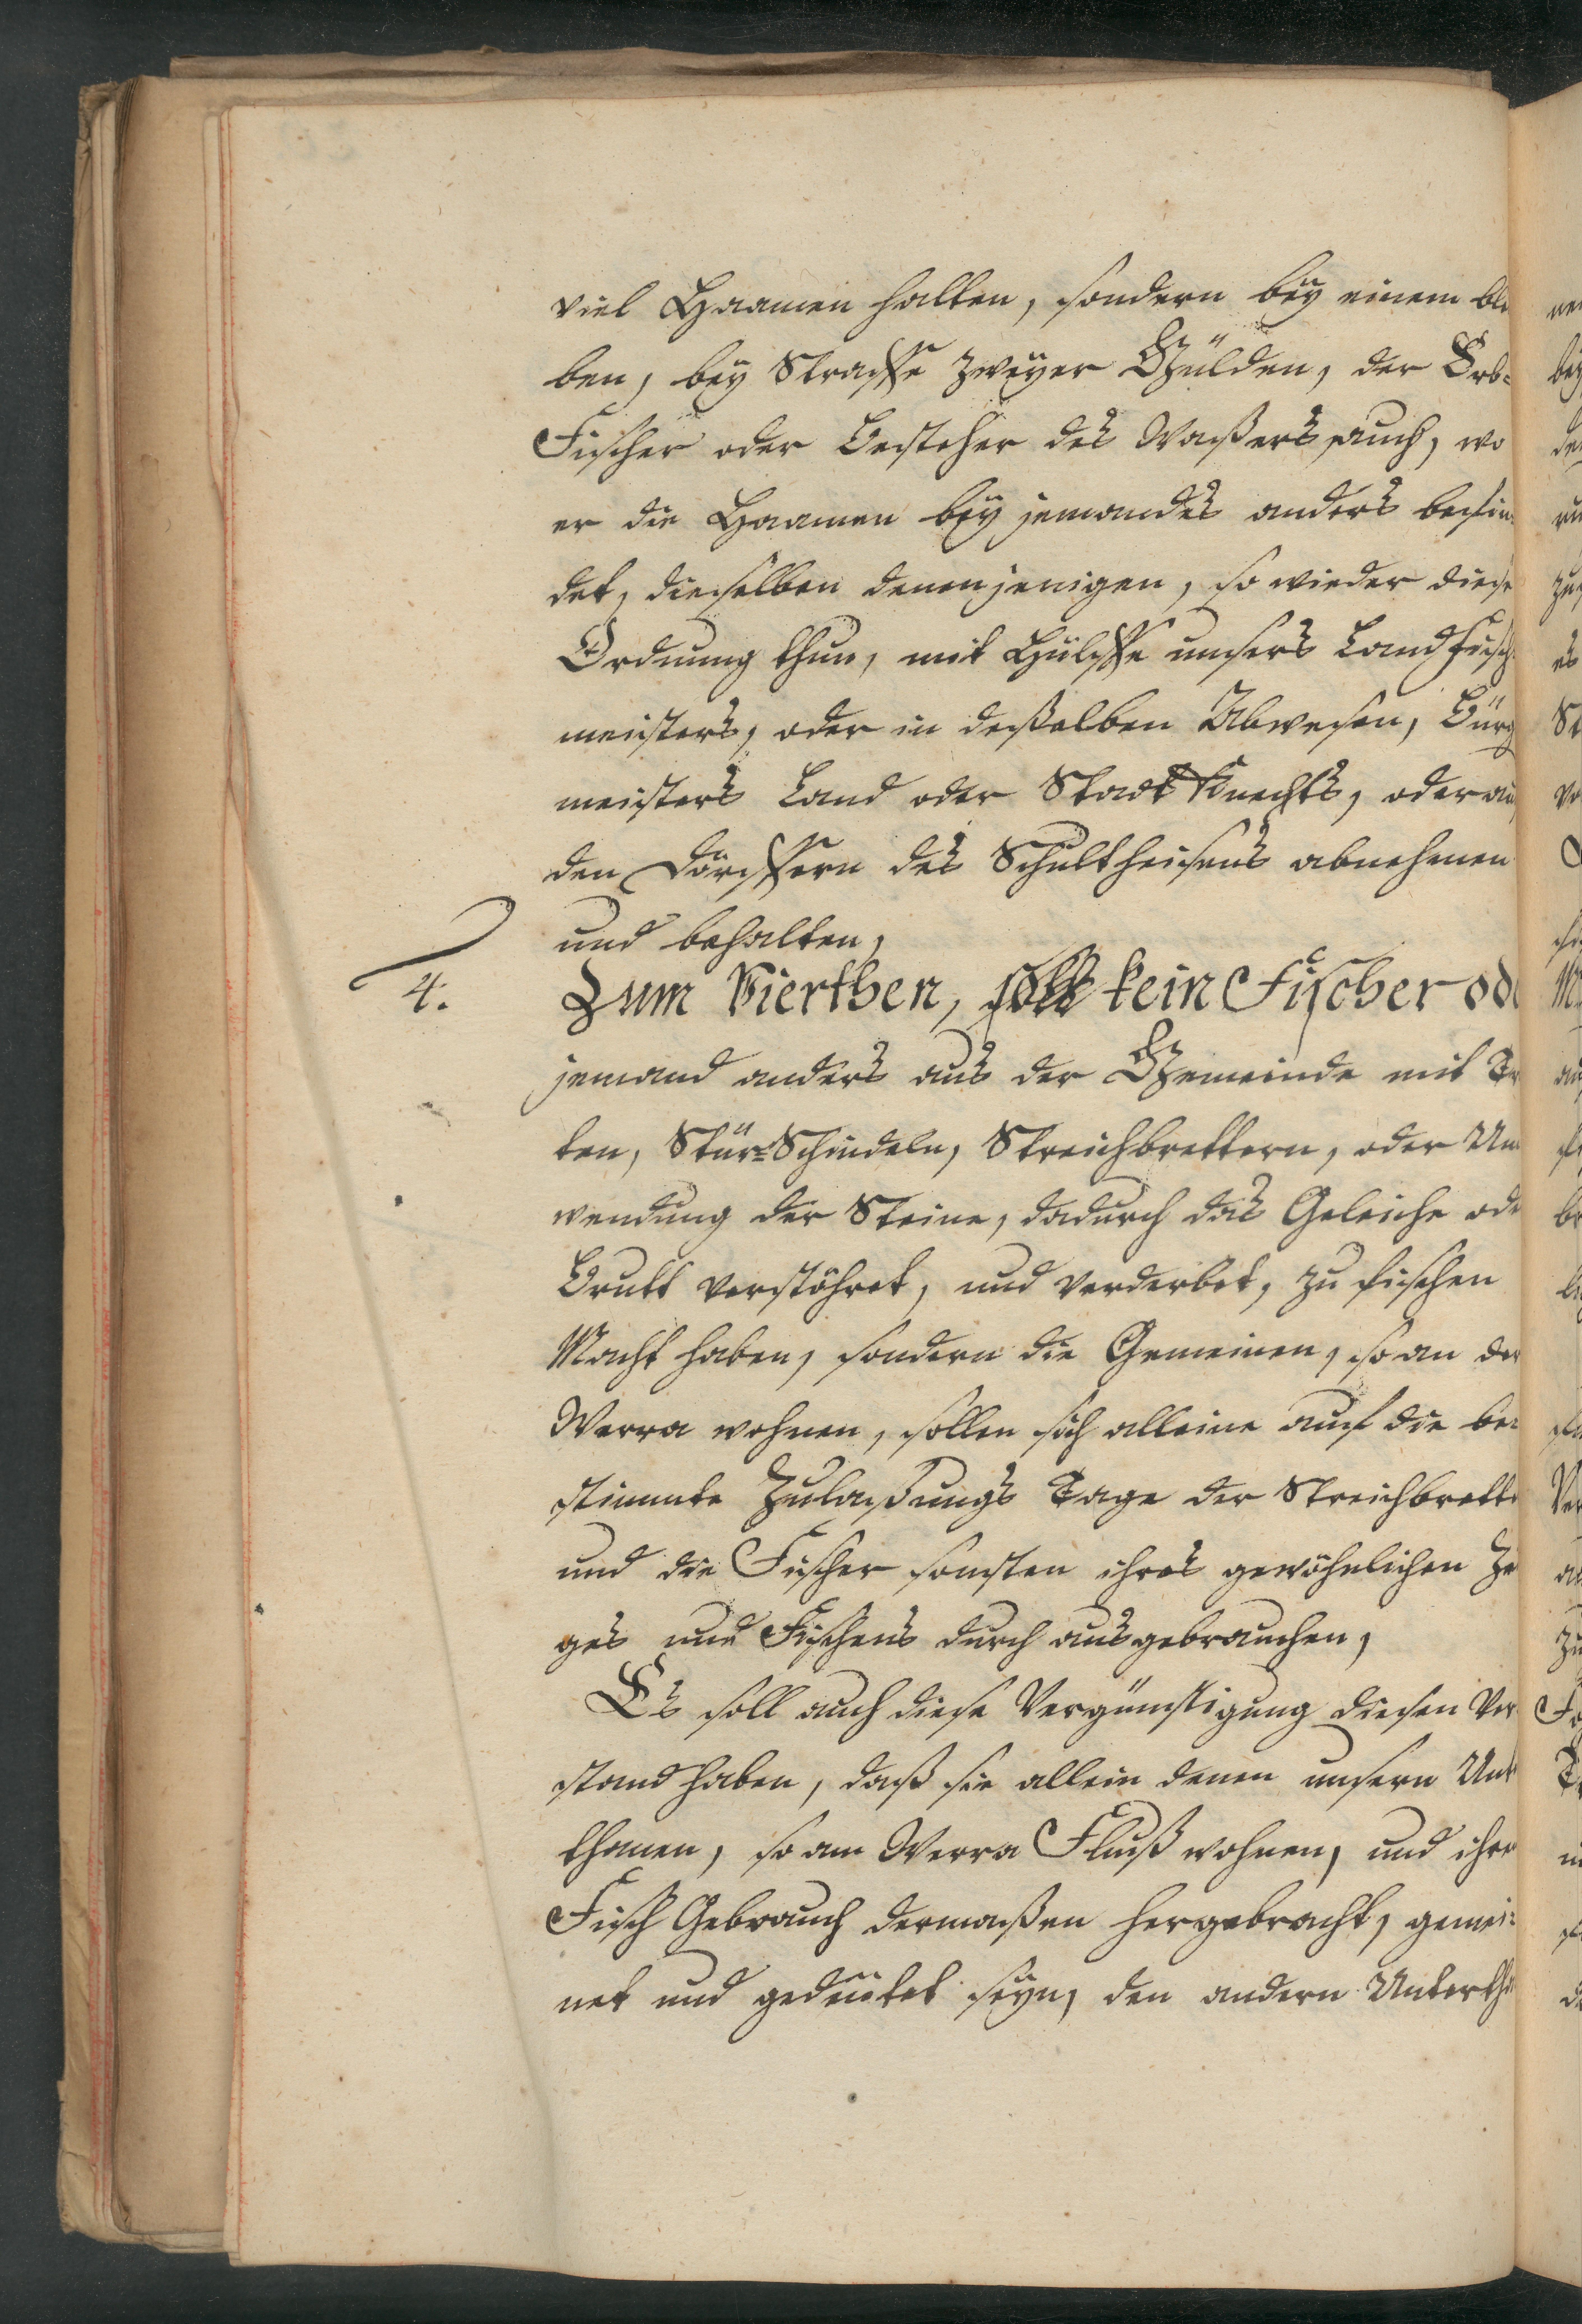 viel Haamen halten, sondern bey einem ble
ben, bey Straffe zweyer Gülden, der Erb-
Fischer oder Besteher des Waßers auch, wo
er die Haamen bey jemandes anders befin
det, dieselben denenjenigen, so wieder diese
Ordnung thun, mit Hülffe unsers Landfisch
meisters, oder in deßelben Abwesen, Bürg
meisters Land oder Stadt Knechts, oder au
den Dörffern des Schultheisens abnehmen
und behalten,
4. Zum Vierthen, soll kein Fischer ode
jemand anders aus der Gemeinde mit
ten, Stür-Schindeln, Streichbrettern, oder Um
wendung der Steine, dadurch das Geleiche ode
Brutt verstöhret, und verderbet, zu fischen
Macht haben, sondern die Gemeinen, so an der
Werra wohnen, sollen sich alleine auf die be-
stimmte Zulaßungs Tage der Streichbrette
und die Fischer sonsten ihres gewöhnlichen Ze
ges und Fischens durch aus gebrauchen,
Es soll auch diese Vergünstigung diesen Ver
stand haben, daß sie allein denen unsern Unt
thanen, so am Werra Fluß wohnen, und ihre
Fisch Gebrauch dermaßen hergebracht, gemei-
net und gedeütet seyn, den andern Untertha